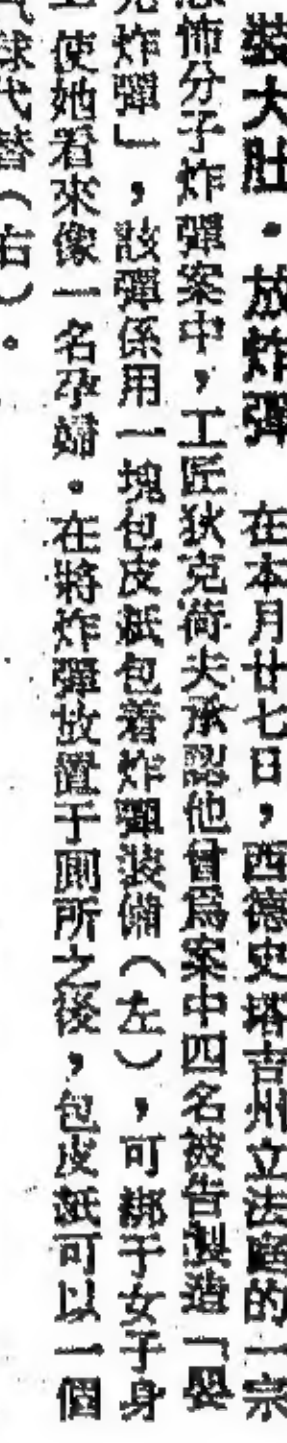 裝大肚·放炸彈 在本月廿七日，西德史塔吉州立法庭的一宗
怖分子炸彈案中，工匠狄克荷夫承認他曾爲案中四名被告製造「嬰
炸彈」，該彈係用一塊包皮紙包着炸彈裝備（左），可綁于女子身
使她看來像一名孕婦。在將炸彈放置于厠所之後，包皮紙可以一個
球代替（右）。